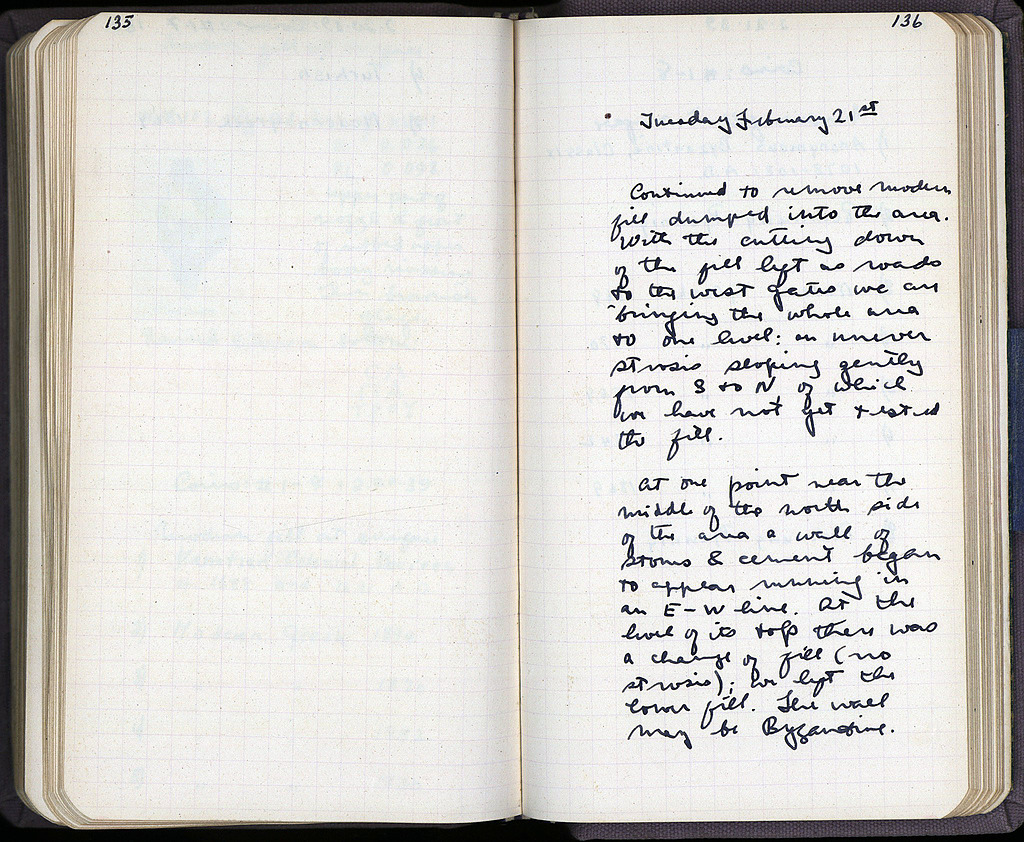 135
136
Tuesday February 21st
Continued to remove modern
fill dumped into the area.
With the cutting down
of the fill left as roads
to the west gates we are
bringing the whole area
to one level: an uneven
strosis sloping gently
from S to N of which
we have not yet tested
the fill.
At one point near the
middle of the north side
of the area a wall of
stones & cement began
to appear running in
an E-W line. At the
level of its top there was
a change of fill (no
strosis); we left the
lower fill. The wall
may be Byzantine.